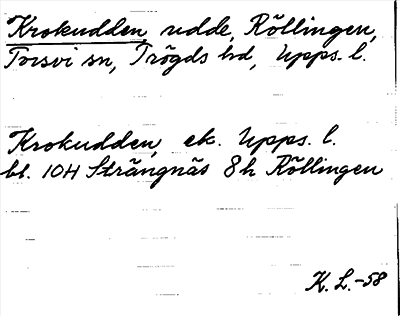 Krokudden, udde, Röllingen,
Torsvi sn, Trögds hd, Upps. l.
Krokudden, ek. Upps. l.
bl. 10H Strängnäs 8h Röllingen
K. L. -58